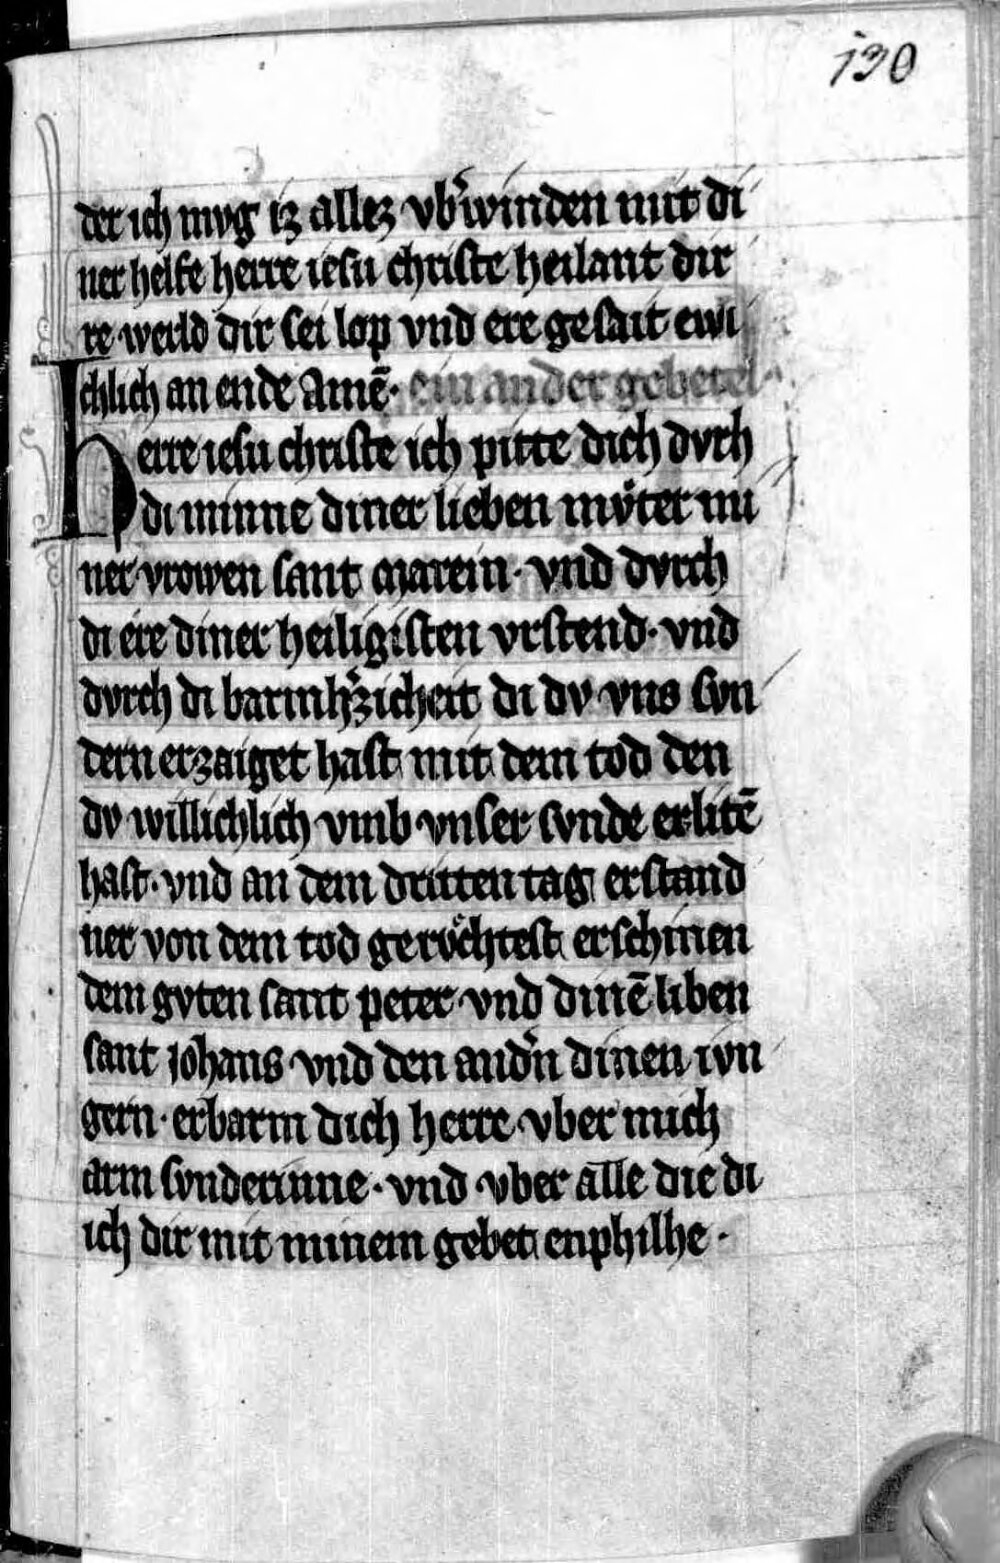 130
der ich mvg iz allez vb͛winden mit di
ner helfe herre iesu christe heilant dir
re werld dir sei lop vnd ere gesait ewi
chlich an ende Amē· ein ander gebetel
Herre iesu christe ich pitte dich dvrh
di minne diner lieben mvͦter mi
ner vrowen sant marein· vnd dvrch
di ere diner heiligisten vrstend· vnd
dvrch di barmh͛zicheit di dv vns svn
dern erzaiget hast mit dem tod den
dv willichlich vmb vnser svnde erlitē
hast· vnd an dem dritten tag erstand
ner von dem tod gervͦchtest erschinen
dem gvten sant peter vnd dinē liben
sant johans vnd den and͛n dinen ivn
gern· erbarm dich herre vber mich
arm svnderinne· vnd vber alle die di
ich dir mit minem gebet enphilhe·